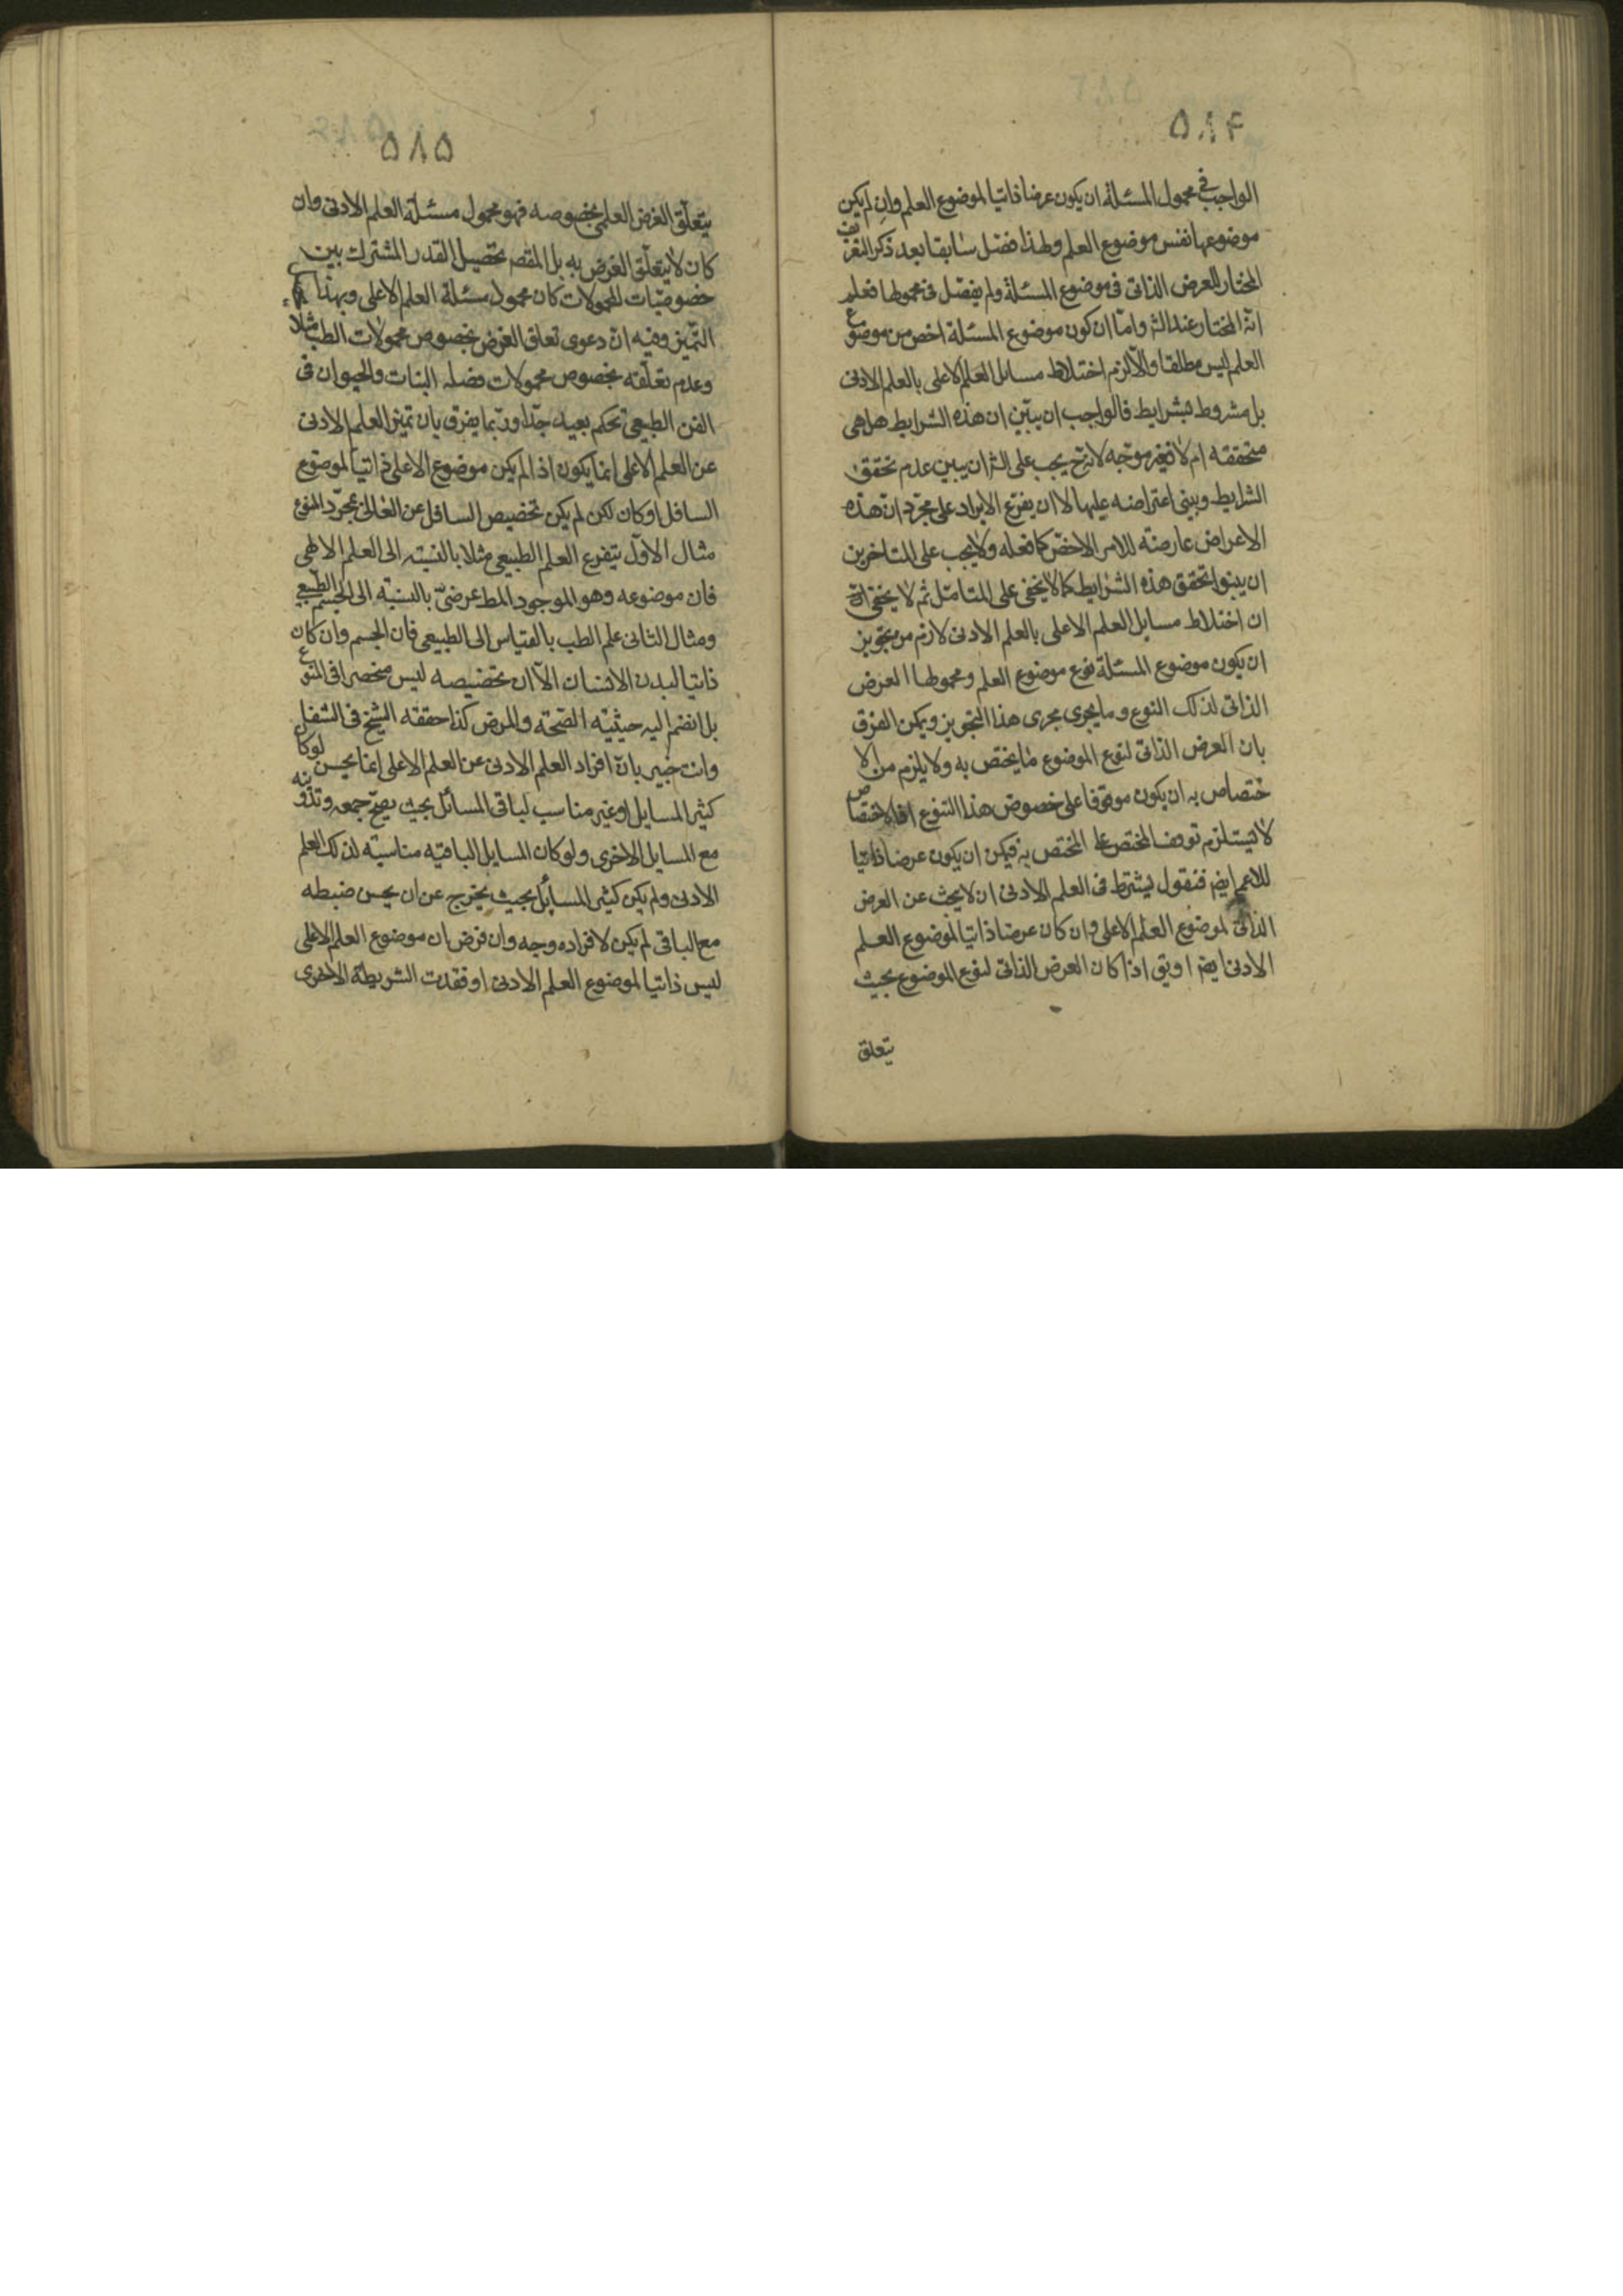 ۵۸۴
الواجب في محمول المسئلة ان يكون عرضا ذاتيا لموضوع العلم وان لم يكن
موضوعها نفس موضوع العلم ولهذا فصّل سابقا بعد ذكر التعريف
المختار للعرض الذاتى فى موضوع المسئلة ولم يفصّل فى محمولها فعلم
انه المختار عند الش واما ان كون موضوع المسئلة اخص من موضوع
العلم ليس مطلقا والا لزم اختلاط مسائل العلم الاعلى بالعلم الادنى
بل مشروط بشرايط فالواجب ان يبيّن ان هذه الشرايط هل هى
متحققه ام لا فغير موجّه لانّ ح يجب على الش ان يبين عدم تحقق
الشرايط ويبنى اعتراضه عليها لا ان يفرّع الايراد على مجرّد ان هذه
الاعراض عارضة للامر الاخصّ كما فعله ولا يجب على المتاخرين
ان يبنوا تحقق هذه الشرايط كما لا يخفى على المتامّل ثم لا يخفى
ان اختلاط مسايل العلم الاعلى بالعلم الادنى لازم من تجويز
ان يكون موضوع المسئلة نوع موضوع العلم ومحمولها العرض
الذاتى لذلك النوع وما يجرى مجرى هذا التجويز ويمكن الفرق
بان العرض الذاتى لنوع الموضوع ما يختص به ولا يلزم من الا
ختصاص به ان يكون موقوفا على خصوص هذا التنوع اذ الاختصاص
لا يستلزم توقف المختص على المختص به فيمكن ان يكون عرضا ذاتيا
للاعم ايضم فنقول يشترط فى العلم الادنى ان لا يبحث عن العرض
الذاتى لموضوع العلم الاعلى وان كان عرضا ذاتيا لموضوع العلم
الادنى ايضم او يق اذا كان العرض الذاتى لنوع الموضوع بحيث
يتعلق
۵۸۵
يتعلّق الغرض العلمى بخصوصه فهو محمول مسئلة العلم الادنى وان
كان لا يتعلّق الغرض به بل المقصم تحصيل القدر المشترك بين
خصوصيّات المحمولات كان محمول مسئلة العلم الاعلى وبهذا
التميز وفيه انّ دعوى تعلق الغرض بخصوص محمولات الطب مثلا
وعدم تعلّقه بخصوص محمولات فضلہ النبات والحيوان فى
الفن الطبيعى تحكم بعيد جدّا وربّما يفرق بان تميز العلم الادنى
عن العلم الاعلى انما يكون اذا لم يكن موضوع الاعلى ذاتيا لموضوع
السافل او كان لكن لم يكن تخصيص السافل عن العالى بمجرّد المنوع
مثال الاوّل يتفرع العلم الطبيعى مثلا بالنسبة الى العلم الالهى
فان موضوعه وهو الموجود المط عرضىّ بالنسبة الى الجسم الطبيعى
ومثال الثانى علم الطب بالقياس الى الطبيعى فان الجسم وان كان
ذاتيا لبدن الانسان الّا ان تخصيصه ليس منحصرا فى النوع
بل انضم اليه حيثيّة الصّحة والمرض كذا حققه الشيخ فى الشفا
وانت خبير بانّ افراد العلم الادنى عن العلم الاعلى انما يحسن لو كان
كثير المسايل او غير مناسب لباقى المسائل بحيث يصحّ جمعه وتدوينه
مع المسايل الاخرى ولو كان المسايل الباقية مناسبة لذلك العلم
الادنى ولم يكن كثير المسايل بحيث يخرج عن ان يحسن ضبطه
مع الباقى لم يكن لافراده وجه وان فرض ان موضوع العلم الاعلى
ليس ذاتيا لموضوع العلم الادنى او فقدت الشريطة الاخرى